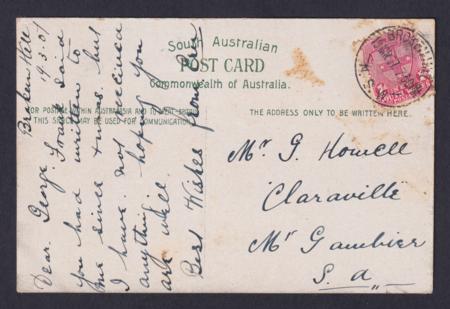 South Australian
POST CARD
Commonwealth of Australia.
FOR POSTAGE WITHIN AUSTRALASIA AND TO
THIS SPACE MAY BE USED FOR COMMUNICATION
THE ADDRESS ONLY TO BE WRITTEN HERE.
Broken Hill
19.3.07
Dear George, Frank said
you had written to
me since Xmas, but
I have not received
anything, hoping you
are well.
Best Wishes from
Mr G. Howell
Claraville
Mt Gambier
S. A